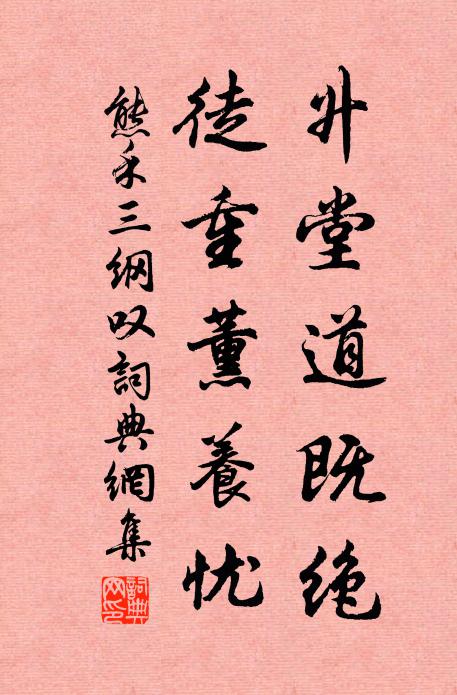 升堂道既绝
徒重薰養忧
熊禾三纲叹詞典網集
詞典网印